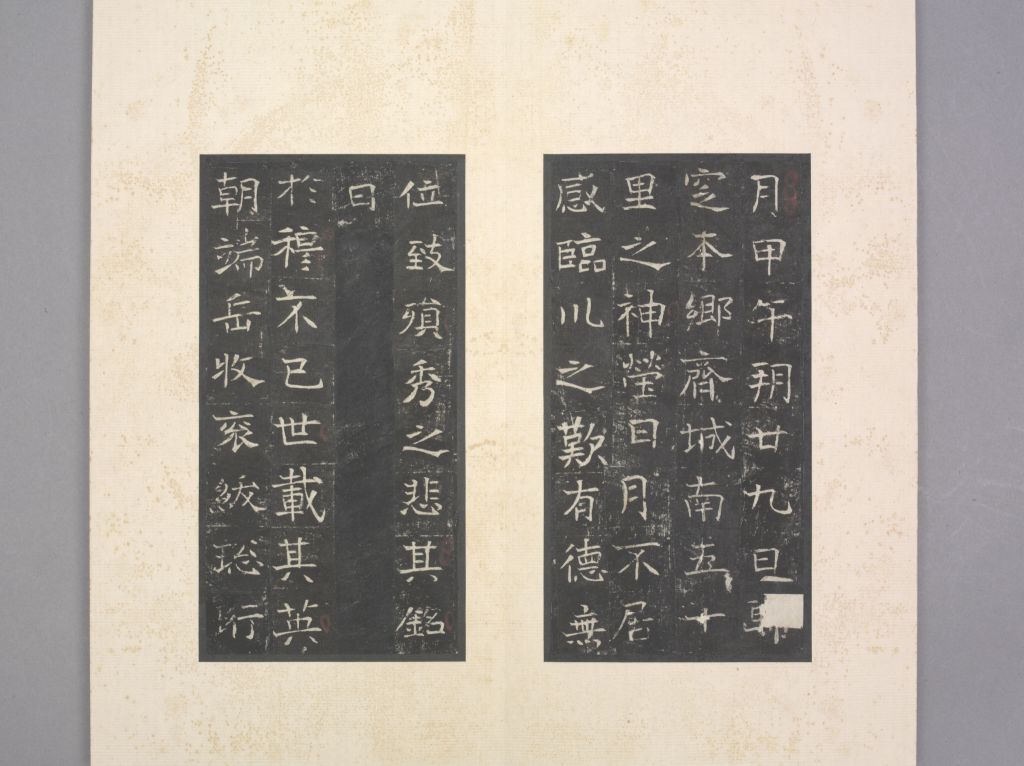 月甲午朔廿九旦
窆本鄉齊城南五十
里之神塋日月不居
感臨川之歎有德無
位致殞秀之悲其銘
曰
於穆不已世載其英
朝端岳牧袞紱璁珩